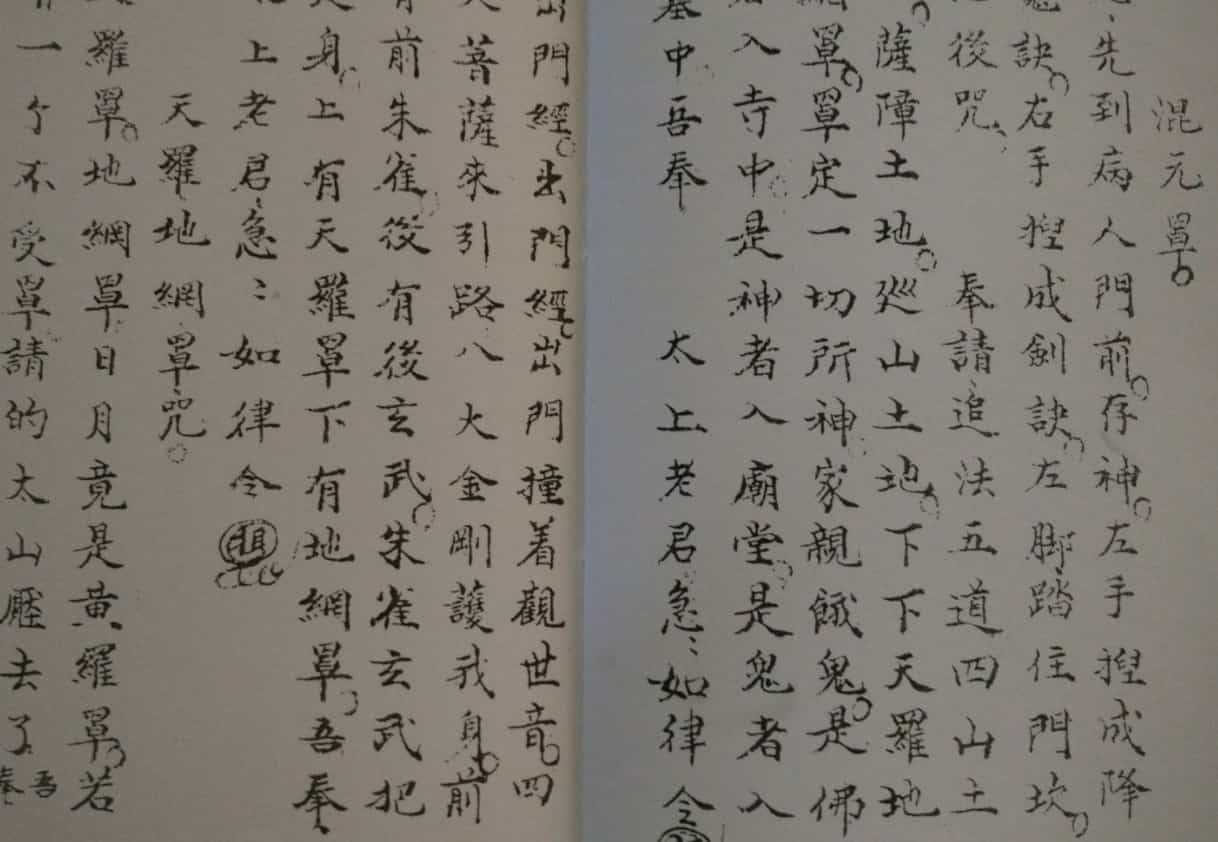 混元罩
先到病人門前存神左手揑成降
訣右手揑成劍訣左脚踏住門坎
後咒　奉請追法五道四山土
薩障土地廵山土地下下天羅地
罩罩定一切所神家親餓鬼是佛
入寺中是神者入廟堂是鬼者入
墓中吾奉　太上老君急〻如律令
出門經出門經出門撞着觀世音四
大菩薩來引路八大金剛護我身前
有前朱雀後有後玄武朱雀玄武把
身上有天羅罩下有地網罩吾奉
上老君急〻如律令
天羅地網罩咒
羅罩地網罩日月竟是黄羅罩若
一个不受罩請的太山壓去了吾奉